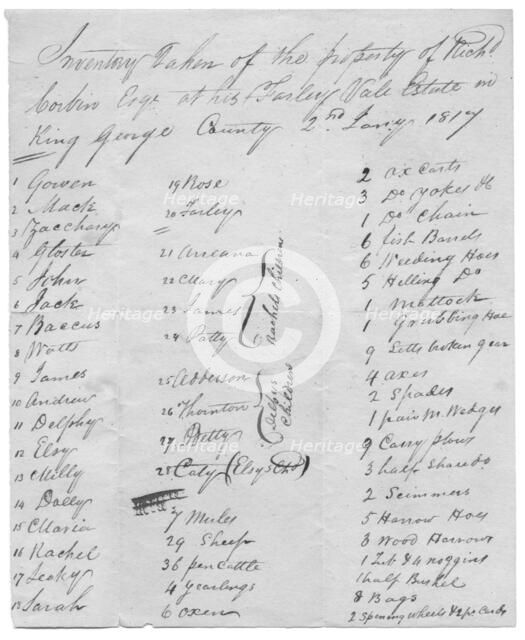 Inventory Taken of the property of Richd
Corbin Esqr at his Farley Vale Estate in
King George County 2nd Jany 1817
1 Gowen
2 Mack
3 Zacchary
4 Gloster
5 John
6 Jack
7 Baccus
8 Watts
9 James
10 Andrew
11 Delphy
12 Elsy
13 Milly
14 Dolly
15 Maria
16 Rachel
17 Lecky
18 Sarah
19 Rose
20 Farley
21 Anciana
22 Mary
23 James
24 Patty
Rachels Children
25 Adderson
26 Thornton
27 Betty
Delpys
Children
28 Caty (Elsys Chd)
7 Mules
29 Sheep
36 pen Cattle
4 Yearlings
6 Oxen
2 Ox Carts
3 Do Yokes &c
1 Do Chain
6 fish Bands
6 Weeding Hoes
5 Hilling Do
1 Mattock
1 Grubbing Hoe
9 Setts broken gear
4 axes
2 Spades
1 pair M. Wedges
9 Cary plows
3 half Share do
2 Scimmers
5 Harrow Hoes
3 Wood Harrows
1 Tub & 4 noggins
1 half Bushel
8 Bags
2 Spening Wheels & 2 pr Cards
Heritage
Heritage
Heritage
Heritage
Heritage
Heritage
Heritage
Heritage